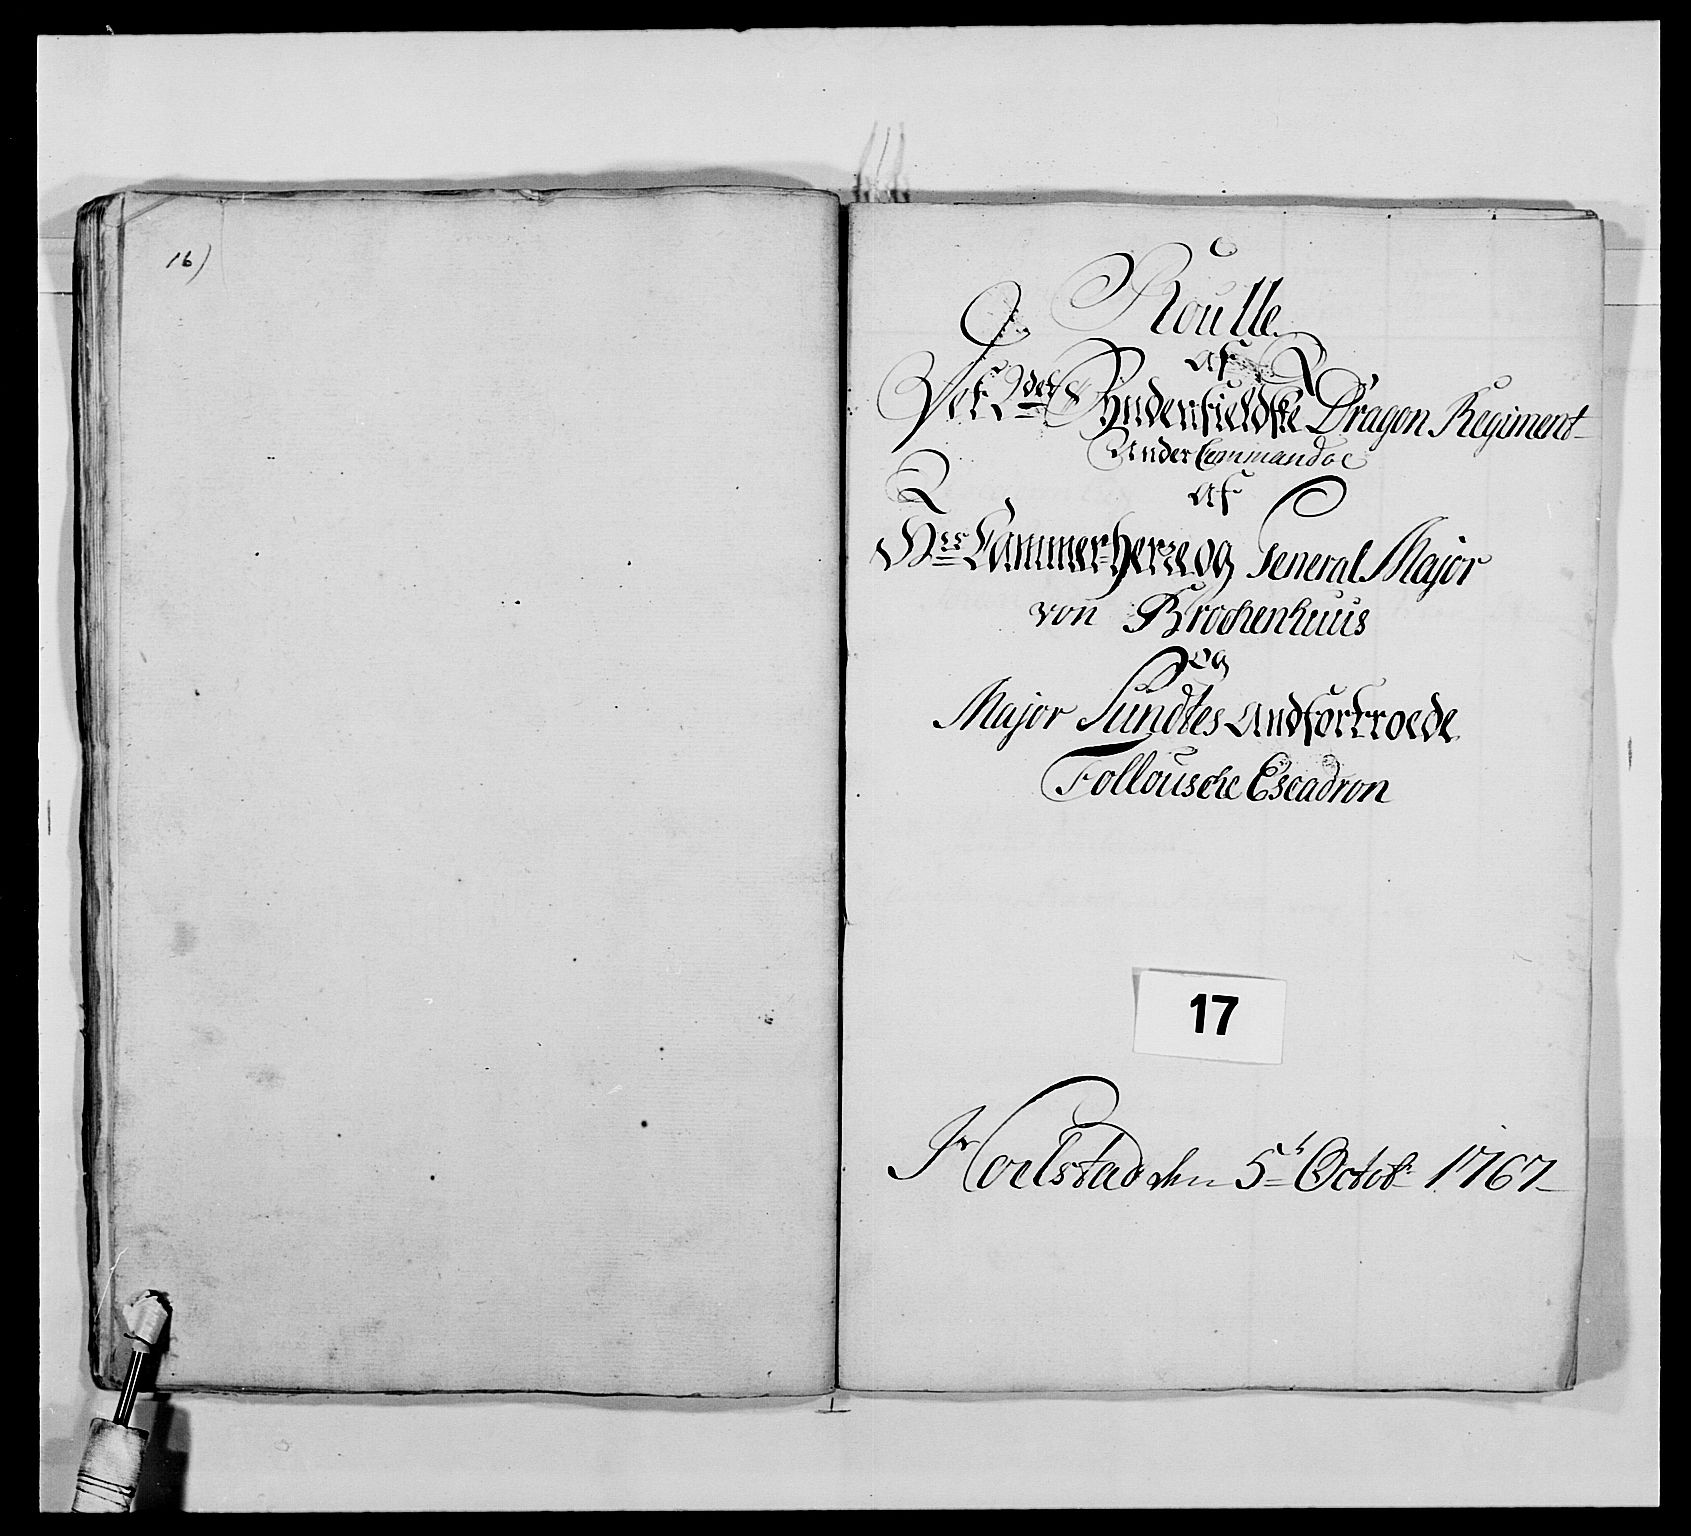 16)
Roulle
af
Det 2det Syndenfieldske Dragon Regiment
Under Commandoe
af
Hrr Cammerherre og General Major
von Brochenhuus
og
Major Sundtes Andfortroede
Follousche Escadron
17
Hoelstad den 5t Octobr 1767